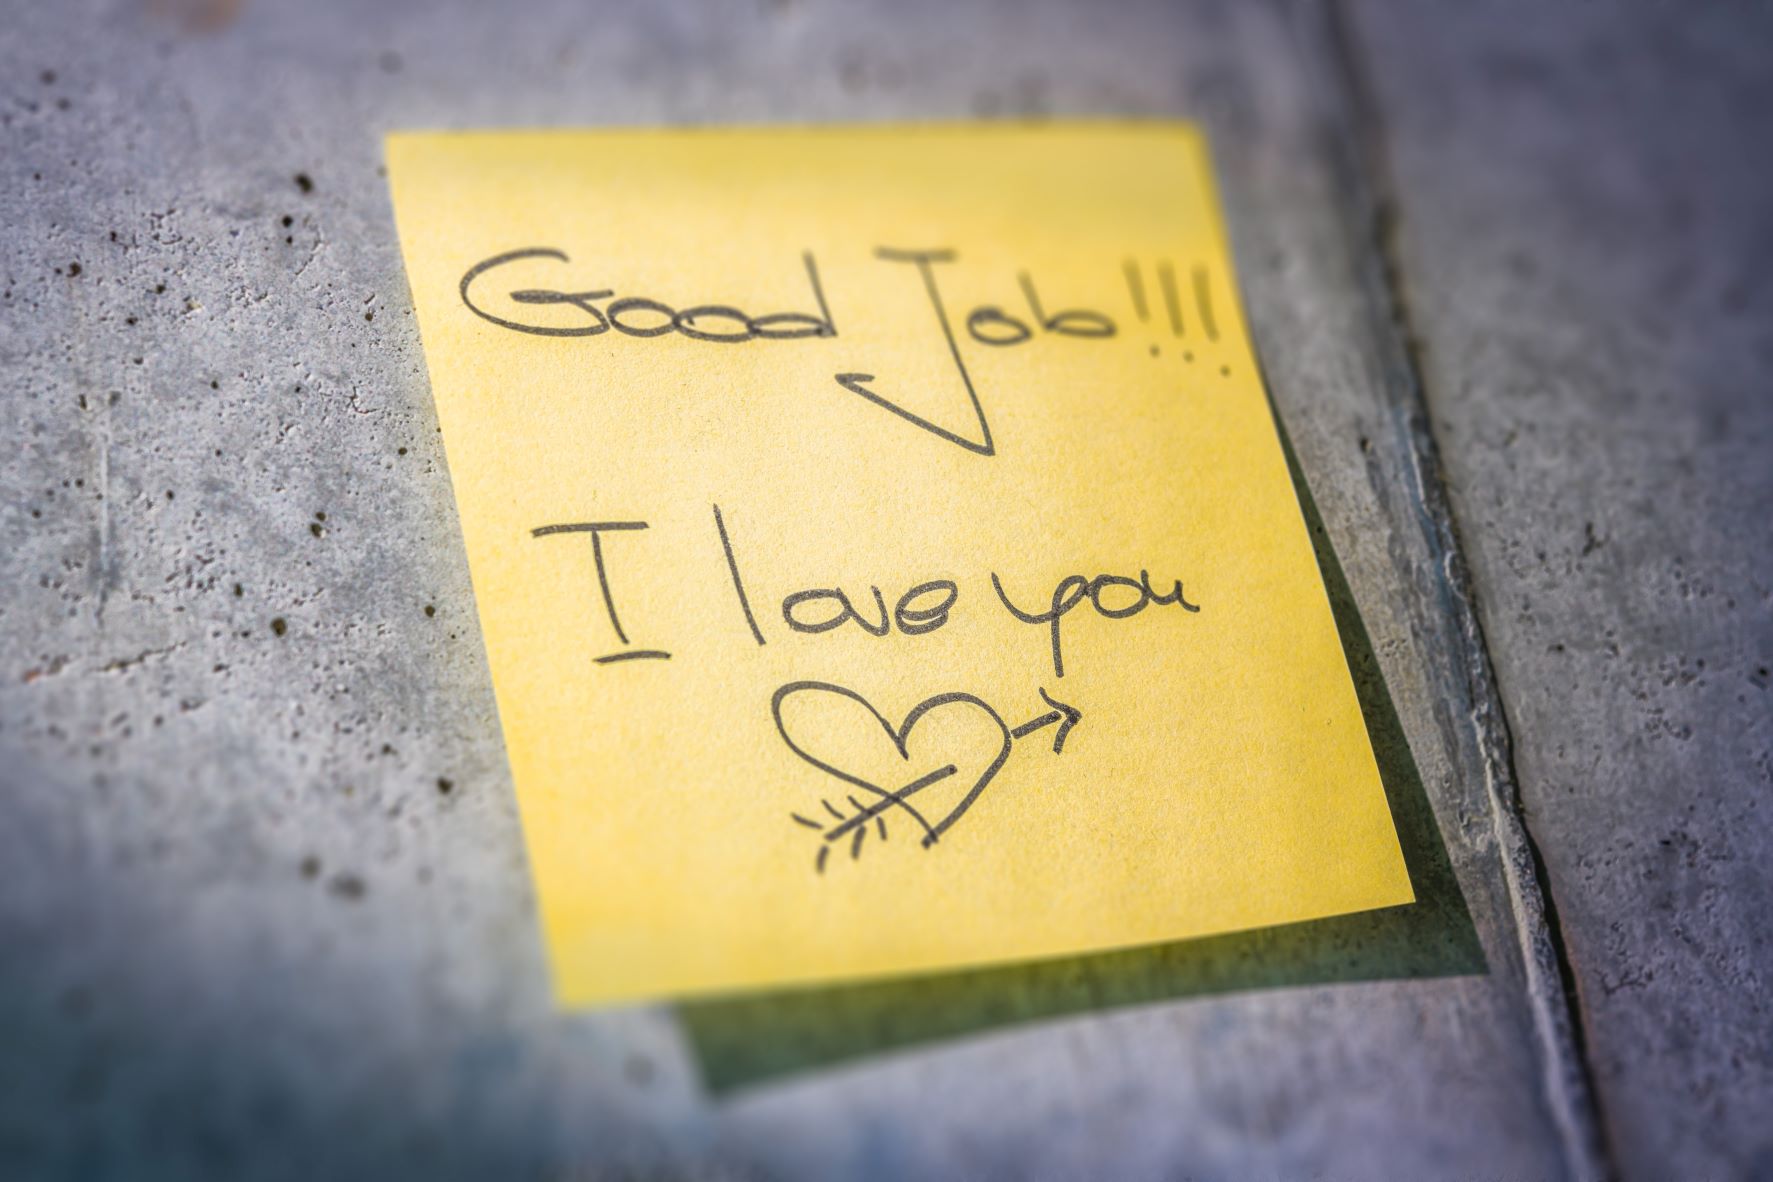 Good Job!!!
I love you